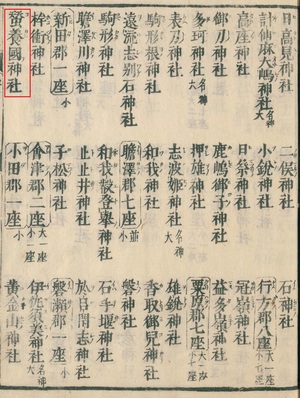 日高見神社 二俣神社 石神社
計仙麻大嶋神社 名神大 小鋭神社 行方郡八座 大一座 小七座
高座神社 日祭神社 冠嶺神社
御刀神社 鹿嶋御子神社 益多嶺神社
多珂神社 名神大 押雄神社 栗原郡七座 大一座
表刀神社 志波姫神社 名神大 雄鋭神社
駒形根神社 和我神社 香取御兒神社
遠流志別石神社 膽澤郡七座 並小 磐神社
駒形神社 和我叡登擧神社 石手堰神社
膽澤川神社 止止井神社 於呂閇志神社
新田郡一座 小 子松神社 磐瀬郡一座 小
桙衝神社 會津郡二座 大一座 小一座 伊佐須美神社 名神大
蠶養國神社 小 小田郡一座 小 黄金山神社